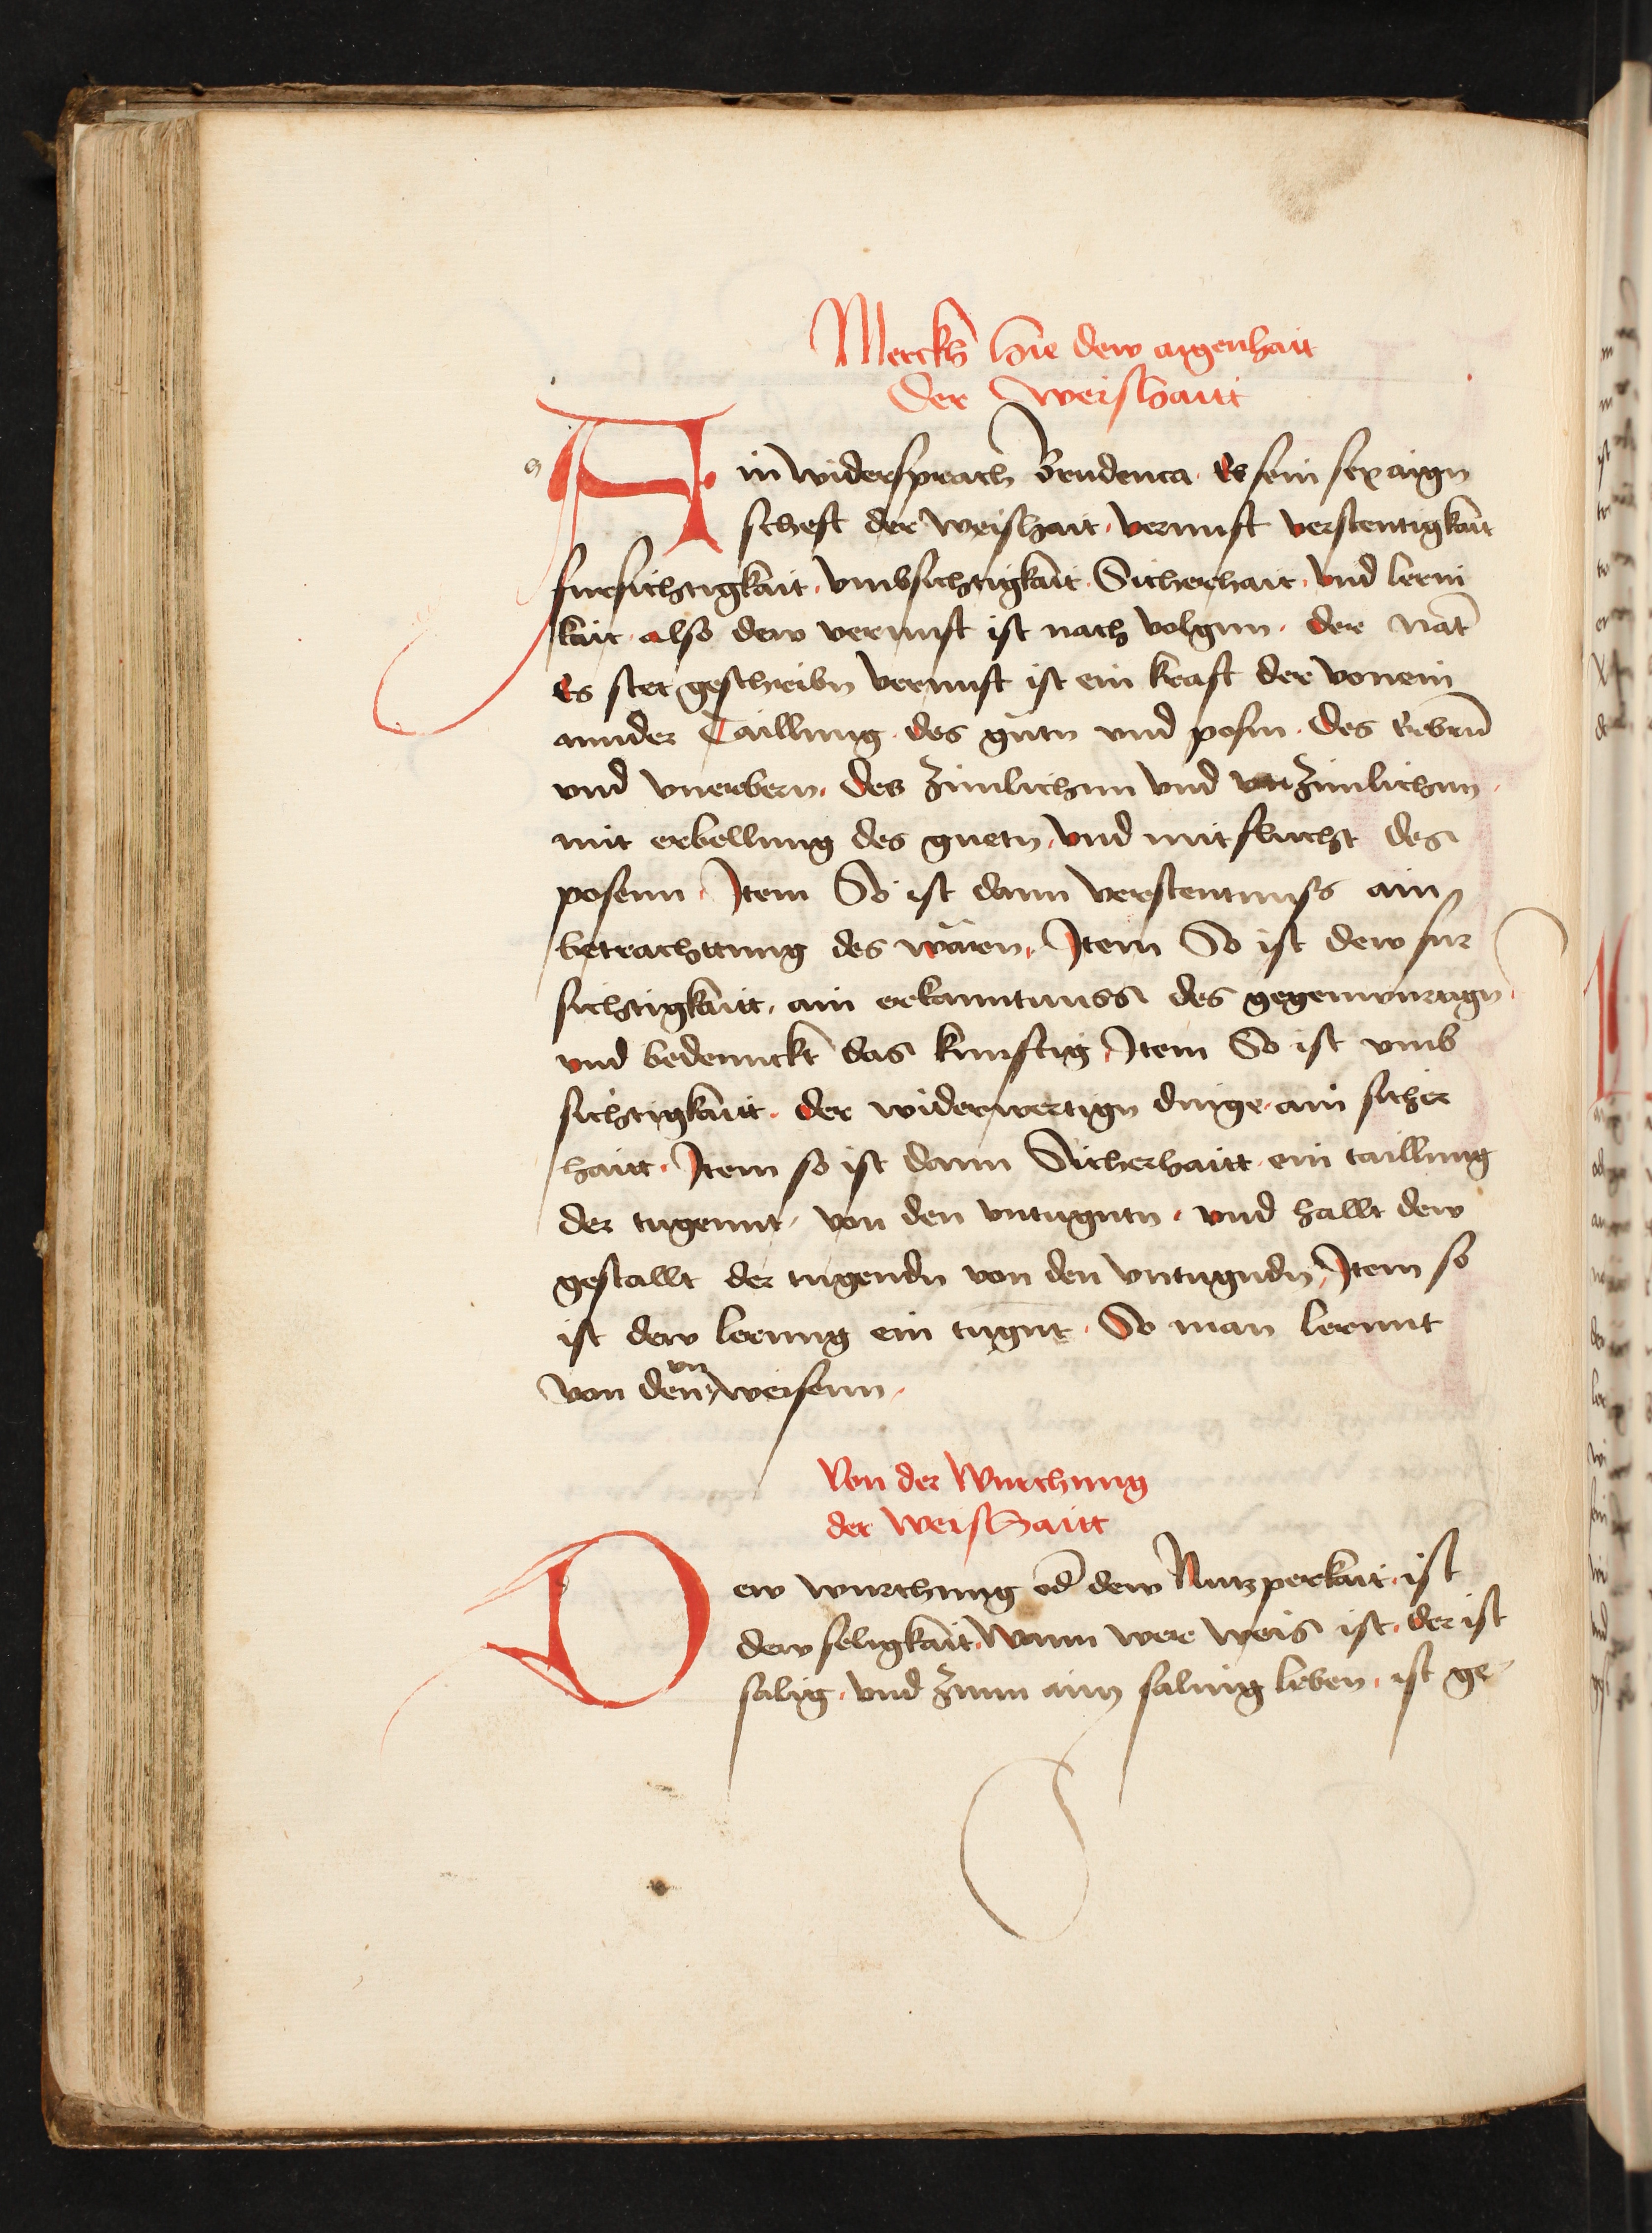 Merckh hie dew aigenhait
Der Weishaitt
Ain widersprach Brudenca. Es sein sex aign
scheft der weishait. vernuft verstentigkait
fursichtigkait. vmbsichtigkait. Sicherhait. vnd lerni
kait. also dew vernuft ist nach volgnn. der nat̄
Es stet geschribn vernuft ist ein kraft der von ein
annder Taillung. des gutn vnd posn. des Erbrn̄
vnd vnerbern. des zimlichnn vnd vnzimlichnn.
mit erbellung des guetn. vnd mit flucht des
posenn. Item So ist dann verstentnuss ain
betrachttung des waren. Item So ist dew fur
sichtigkaitt. ain erkanntnuss des gegenwurtign.
vnd bedennckt das kunftig. Item So ist vmb
sichtigkaitt. der widerwertign dinge. ain sicher
haitt. Item so ist dann Sicherhaitt. ein taillung
der tugennt. von den vntugntn. vnd hallt dew
gestallt der tugendn von den vntugndn. Item so
ist dew lernung ein tugnt. So man lernnt
vn
von den weisenn.
Von der Wurchung
der weishaitt
Dew wurchung od̄ dew Nutzperkait. ist
dew seligkait. Wann wer weis ist. der ist
salig. vnd zunn ainn saling leben. ist ge